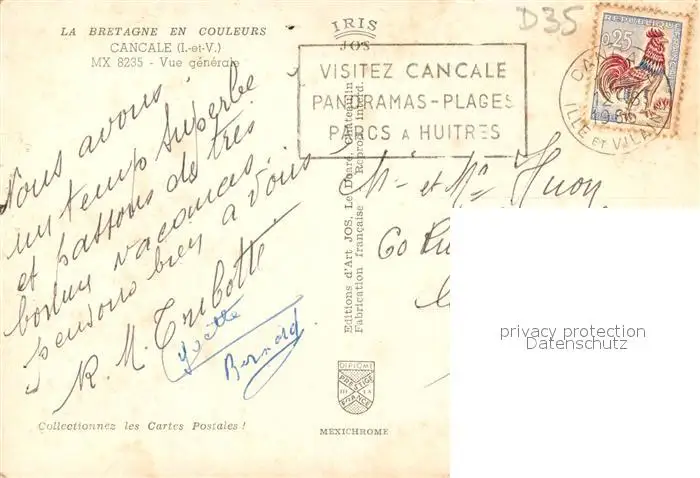 LA BRETAGNE EN COULEURS
CANCALE (I.-et-V.)
MX 8235 - Vue générale
IRIS
JOS
D35
VISITEZ CANCALE
PANORAMAS-PLAGES
PARCS A HUITRES
REPUBLIQUE FRANÇAISE
0,25
ILLE ET VILAINE
Nous avons
un temps superbe
et passons de très
bonnes vacances.
pensons bien à vous
R. M. Tribotté
Yvette
Bernard
Mr et Me Huon
60 Rue
Editions d'Art JOS, Le Doaré, Châteaulin
Fabrication française Reprod. interd.
DIPLOME
PRESTIGE
DE LA
FRANCE
MEXICHROME
Collectionnez les Cartes Postales !
privacy protection
Datenschutz